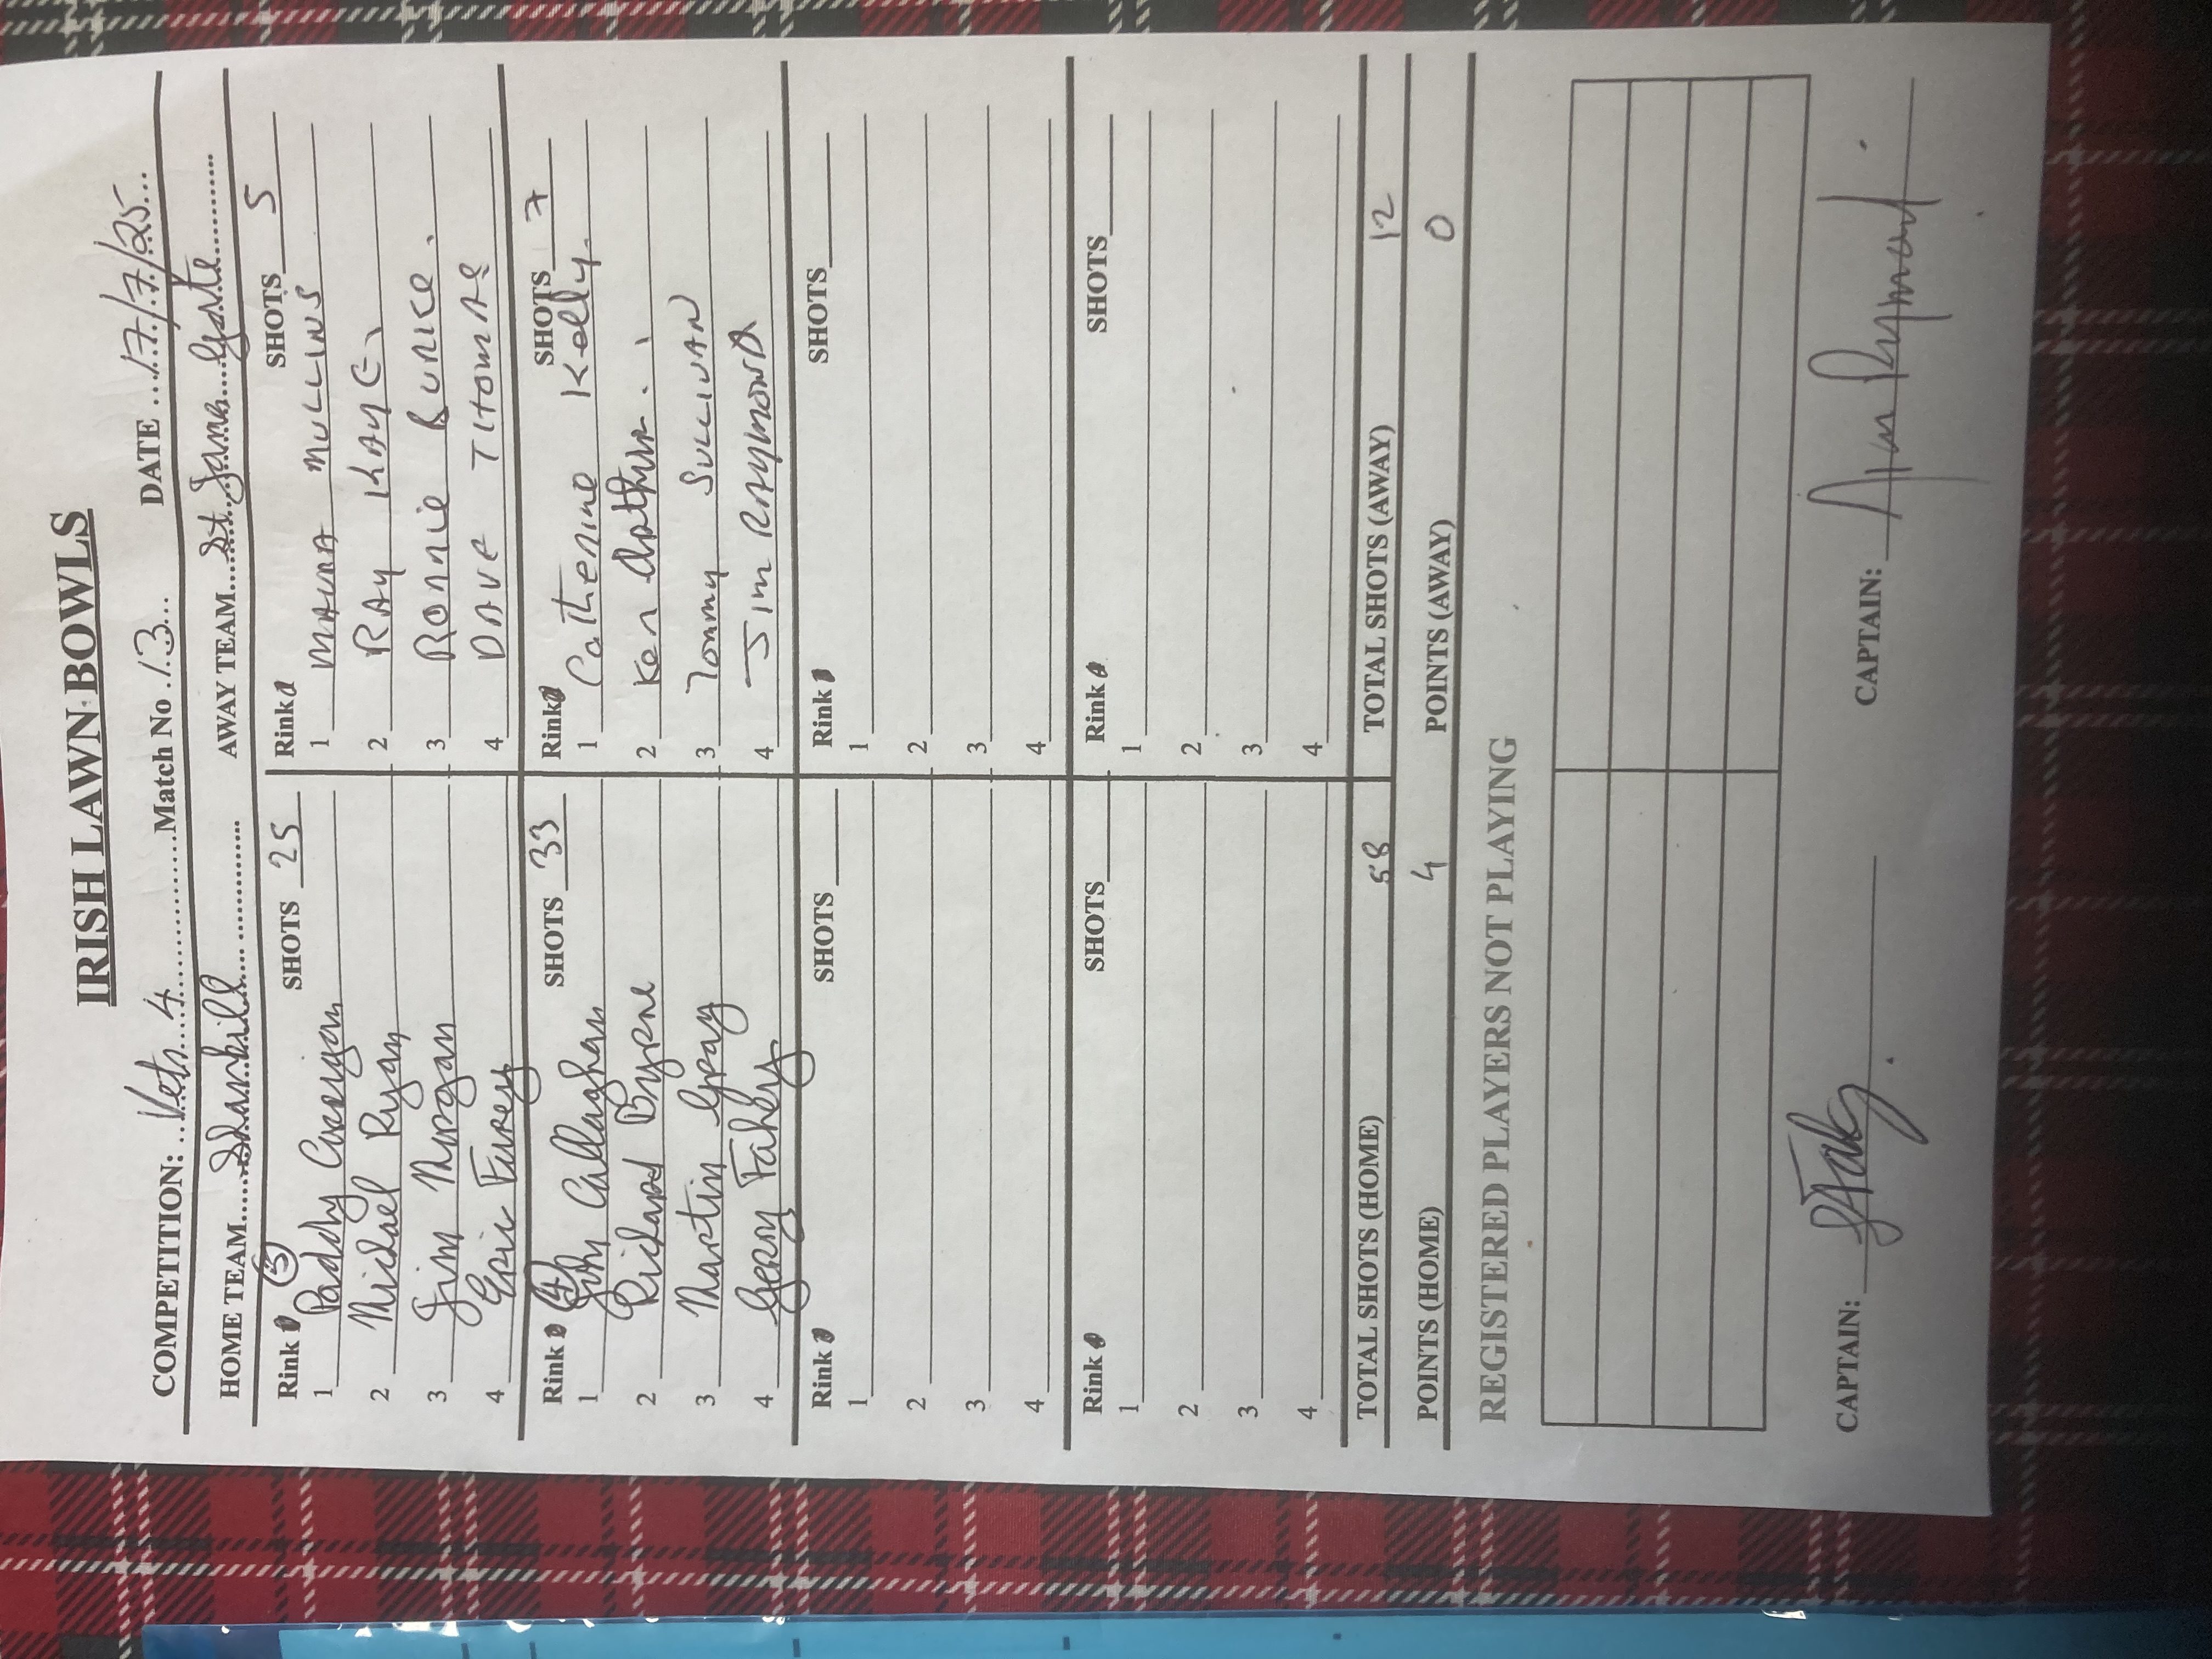 IRISH LAWN BOWLS
COMPETITION: ...Vets...4..................Match No .13... DATE ....17./.7./.25...
HOME TEAM.....Shankill.... ............ AWAY TEAM......St..James...Gate...........
Rink 5 SHOTS 25 Rink SHOTS 5
1 Paddy 1 MAURA MULLINS
2 Michael Ryan 2 RAY KAYE
3 Jim Morgan 3 RONNIE BURKE.
4 Eric Furey 4 DAVE THOMAS
Rink 4 SHOTS 33 Rink SHOTS 7
1 John Callaghan 1 Catherine Kelly.
2 Richard Byrne 2 Ken
3 Martin Gray 3 Tommy SULLIVAN
4 Gerry Fahey 4 Jim RAYMOND
Rink SHOTS Rink SHOTS
1 1
2 2
3 3
4 4
Rink SHOTS Rink SHOTS
1 1
2 2
3 3
4 4
TOTAL SHOTS (HOME) 58 TOTAL SHOTS (AWAY) 12
POINTS (HOME) 4 POINTS (AWAY) 0
REGISTERED PLAYERS NOT PLAYING
CAPTAIN: CAPTAIN: Raymond